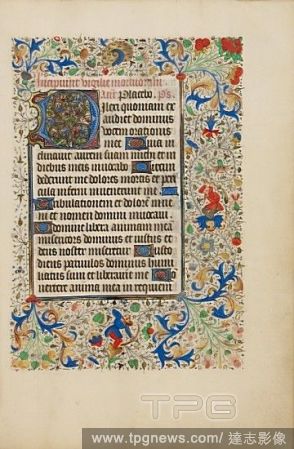 Incipiunt vigilie mortuorum
Ant Placebo. ps.
Dilexi quoniam ex
audiet dominus
vocem orationis
mee Quia in
clinauit aurem suam michi et in
diebus meis inuocabo
dederunt me dolores mortis et peri
cula inferni inuenerunt me
Tribulationem et dolorem inue
ni et nomen domini inuocaui
O domine libera animam meam
misericors dominus et iustus et
deus noster miseretur Custo
diens paruulos dominus humi
liatus sum et liberauit me Con
uertere anima mea in requiem
TPG
www.tpgnews.com / 達志影像